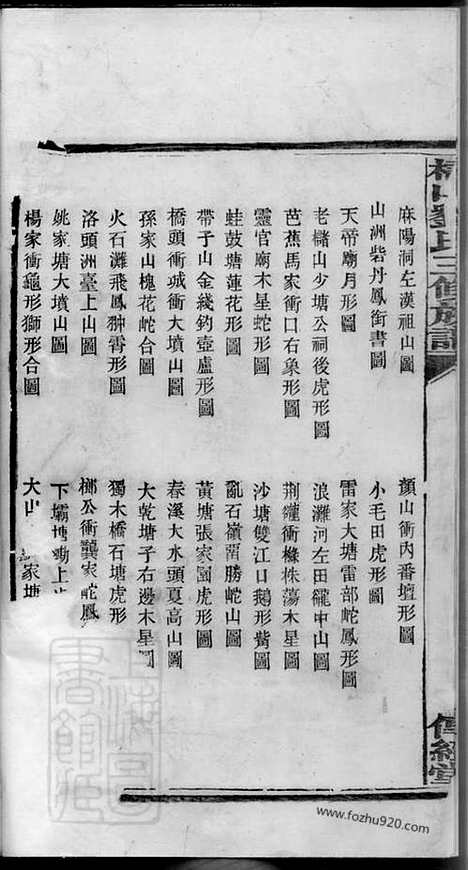 劉氏三修族譜
麻陽洞左漢祖山圖
山洲砦丹鳳銜書圖
天帝廟月形圖
老儲山少塘公祠後虎形圖
芭蕉馬家衝口右象形圖
靈官廟木星蛇形圖
蛙鼓塘蓮花形圖
帶子山金綫釣壺盧形圖
橋頭衝城衝大墳山圖
孫家山槐花蛇合圖
火石灘飛鳳翀霄形圖
洛頭洲臺上山圖
姚家塘大墳山圖
楊家衝龜形獅形合圖
顏山衝內番壇形圖
小毛田虎形圖
雷家大塘雷部蛇鳳形圖
浪灘河左田籠中山圖
荆纏衝橼株蕩木星圖
沙塘雙江口鵝形觜圖
亂石嶺菌勝蛇山圖
黃塘張家園虎形圖
春溪大水頭夏高山圖
大乾塘子右邊木星圖
獨木橋石塘虎形
榔公衝龔家蛇鳳
下壩 上
大山 家塘
傳經堂
上海圖書館藏
www.fozhu920.com